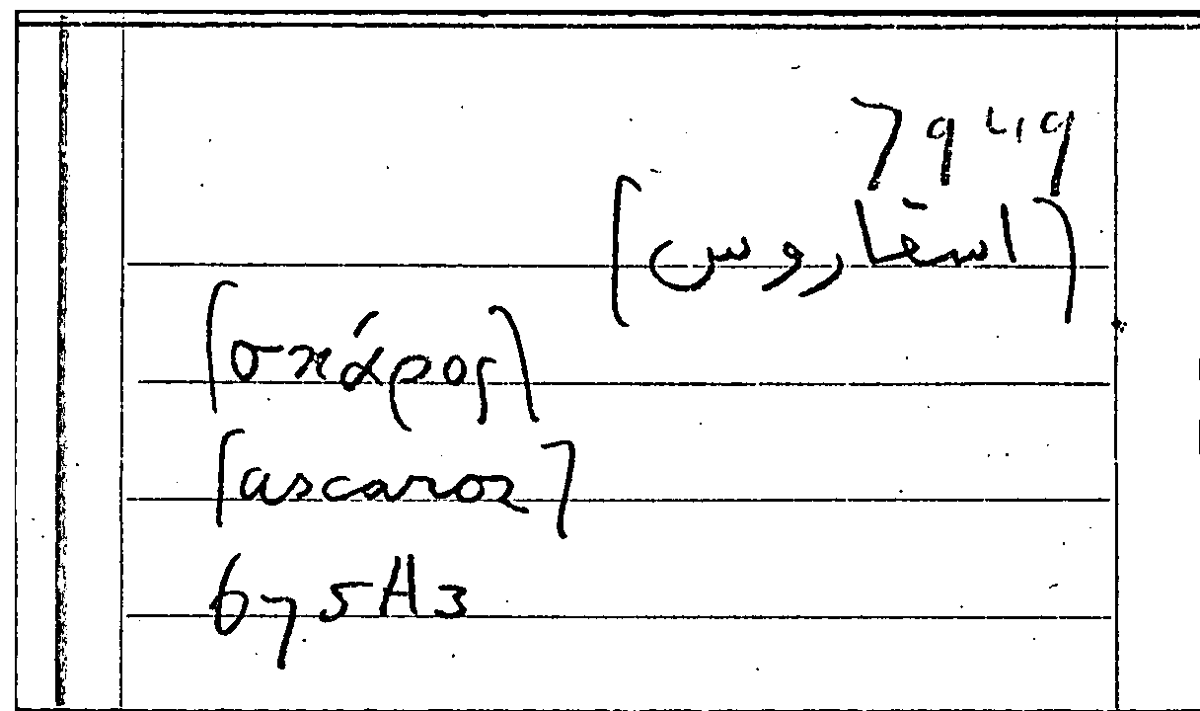 7949
(اسقاروس)
(σκάρος)
[ascaros]
675A3